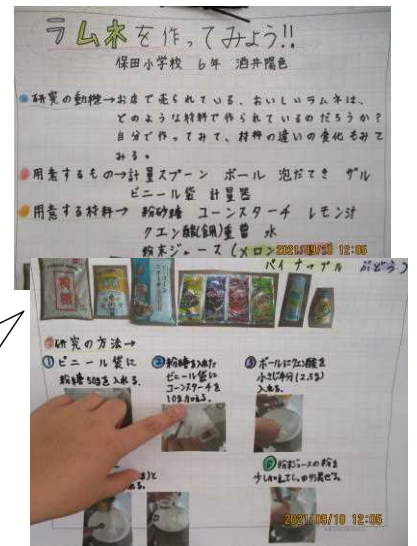 ラムネを作ってみよう!!
保田小学校 6年 酒井陽色
研究の動機→お店で売られている、おいしいラムネは、
どのような材料で作られているのだろうか?
自分で作ってみて、材料の違いの変化もみて
みる。
用意するもの→計量スプーン ボール 泡だてき ザル
ビニール袋 計量器
用意する材料→ 粉砂糖 コーンスターチ レモン汁
クエン酸(食用)重曹 水
粉末ジュース(メロン
2021/09/10 12:05
パイナップル ぶどう)
研究の方法→
①ビニール袋に
粉糖50gを入れる。
②粉糖を入れた
ビニール袋に
コーンスターチを
10g加える。
③ボールにクエン酸を
小さじ半分(2.5g)
入れる。
⑤粉末ジュースの粉を
2021/09/10 12:05